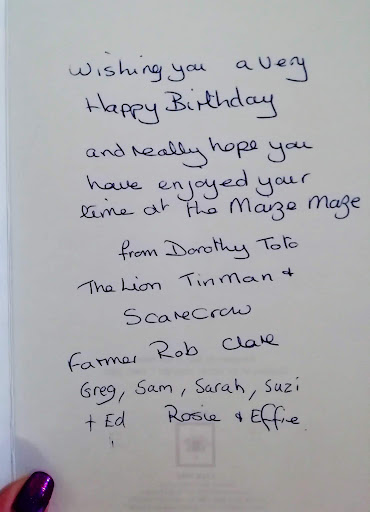 Wishing you a very
Happy Birthday
and really hope you
have enjoyed your
time at the Maize Maze
from Dorothy Toto
The Lion Tin Man &
Scarecrow
Farmer Rob Clare
Greg, Sam, Sarah, Suzi
+ Ed Rosie & Effie